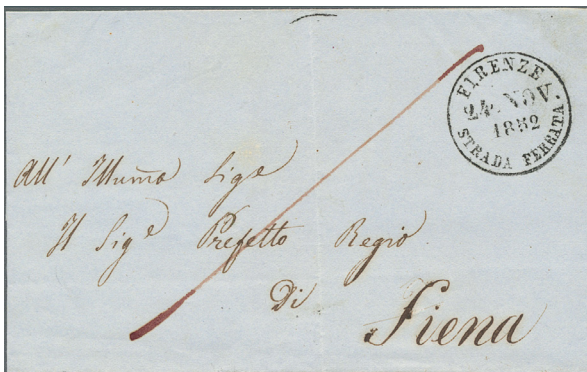 FIRENZE
24. NOV.
1852
STRADA FERRATA
All' Illumo Sige
Il Sige Prefetto Regio
Di
Siena